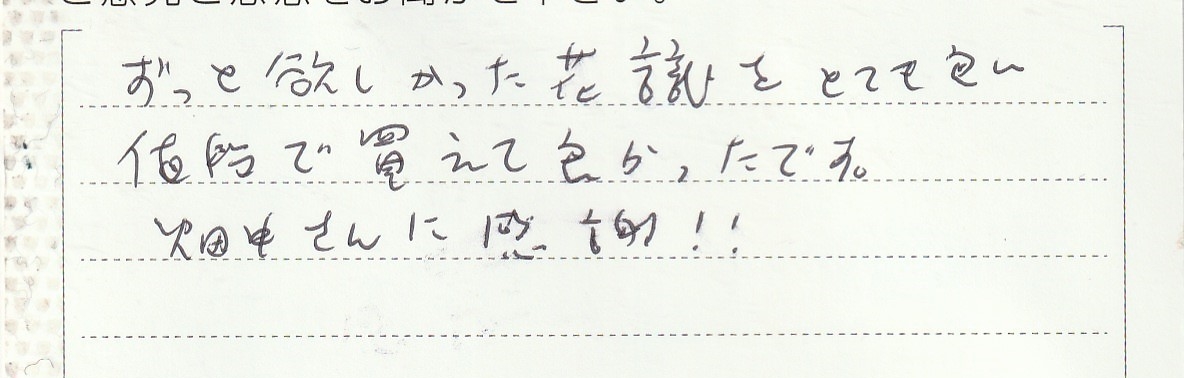 ご意見ご感想をお聞かせ下さい。
ずっと欲しかった花譜をとても良い
値段で買えて良かったです。
畑中さんに感謝!!